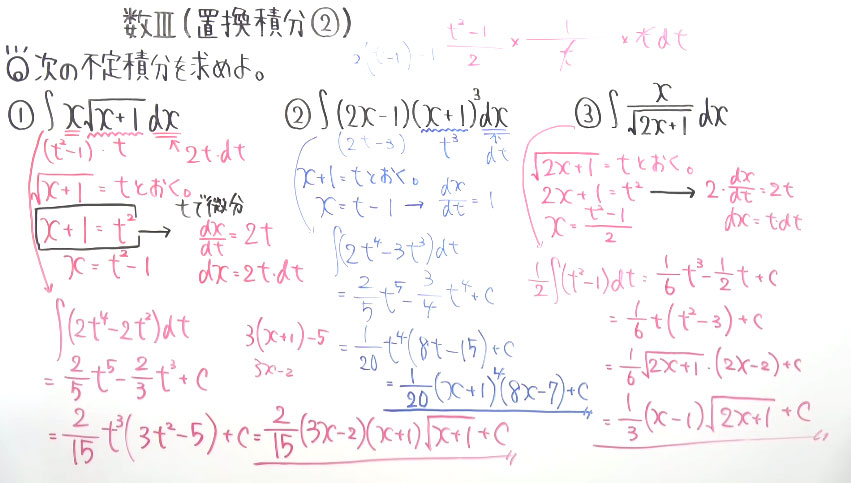 数Ⅲ(置換積分②)
2(t-1)-1
t²-1/2 × 1/t × t dt
◎次の不定積分を求めよ。
① ∫x√(x+1) dx
(t²-1)・t 2t・dt
√(x+1) = tとおく。
x+1 = t² → tで微分
dx/dt = 2t
x = t²-1
dx = 2t・dt
∫(2t⁴-2t²)dt
= 2/5 t⁵ - 2/3 t³ + C
3(x+1)-5
3x-2
= 2/15 t³(3t²-5)+C = 2/15 (3x-2)(x+1)√(x+1) + C
② ∫(2x-1)(x+1)³dx
(2t-3) t³ dt
x+1 = tとおく。
x = t-1 → dx/dt = 1
∫(2t⁴-3t³)dt
= 2/5 t⁵ - 3/4 t⁴ + C
= 1/20 t⁴(8t-15)+C
= 1/20 (x+1)⁴(8x-7)+C
③ ∫ x/√(2x+1) dx
√(2x+1) = tとおく。
2x+1 = t² → 2・dx/dt = 2t
x = t²-1/2
dx = t・dt
1/2∫(t²-1)dt = 1/6 t³ - 1/2 t + C
= 1/6 t(t²-3)+C
= 1/6 √(2x+1)・(2x-2)+C
= 1/3 (x-1)√(2x+1) + C